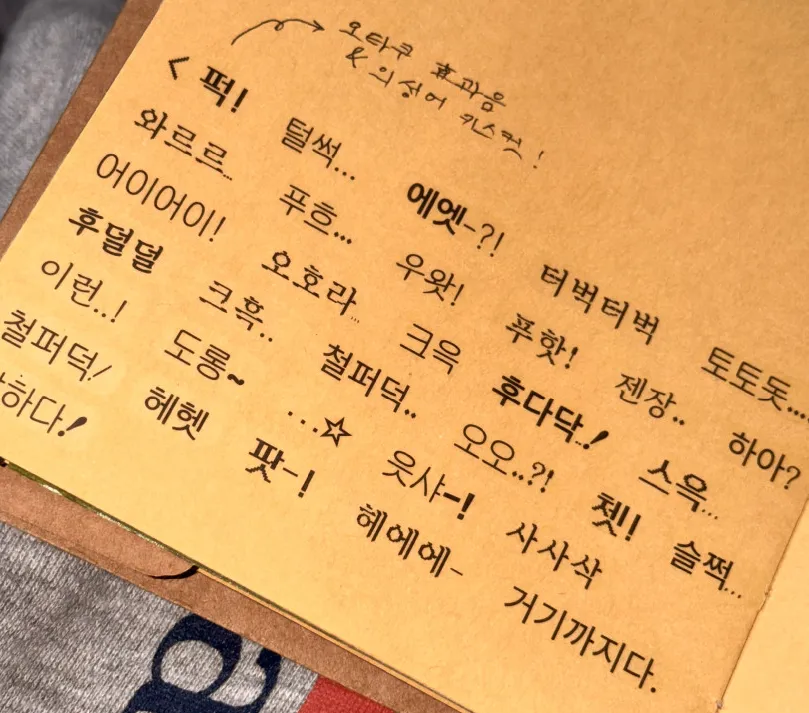 오타쿠 효과음
& 의성어 킷스컷!
< 퍽! 털썩... 에엣-?! 터벅터벅 토토돗....
와르르... 푸흐... 우왓! 푸핫! 젠장.. 하아?
어이어이! 오호라... 크윽 후다닥..! 스윽...
후덜덜 크흑.. 철퍼덕.. 오오..?! 쳇! 슬쩍...
이런..! 도롱~ ...☆ 읏샤-! 사사삭
철퍼덕! 헤헷 팟-! 헤에에- 거기까지다.
하다!